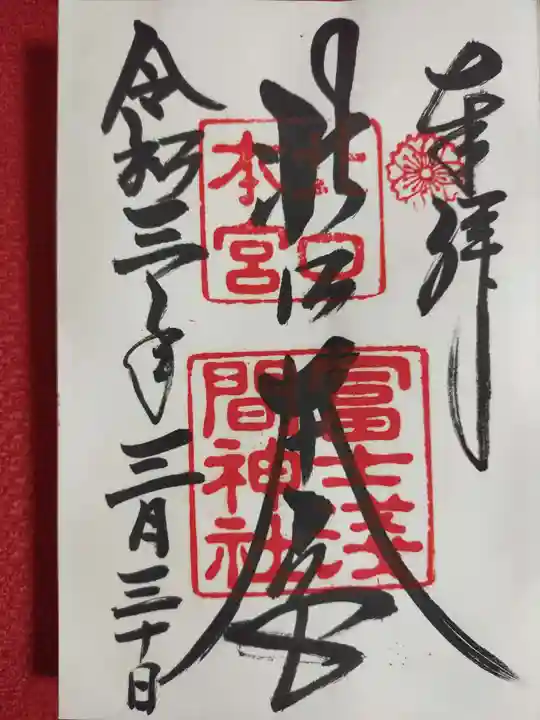 奉拝
北口本宮
北口
本宮
冨士浅
間神社
令和三年三月三十日